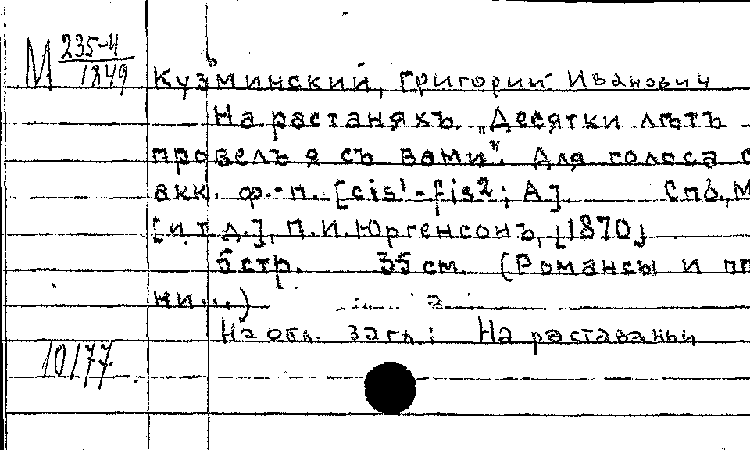 М 235-4/1849
Кузьминский, Григорий Иванович
На растаняхъ. „Десятки лѣтъ
провелъ я съ вами". Для голоса с
акк. ф.-п. [cis¹-fis²; A]. Спб, М
[и т.д.], П.И. Юргенсонъ, [1870]
5 стр. 35 см. (Романсы и пѣ
ни...)
На обл. загл.: На раставаньи
10177